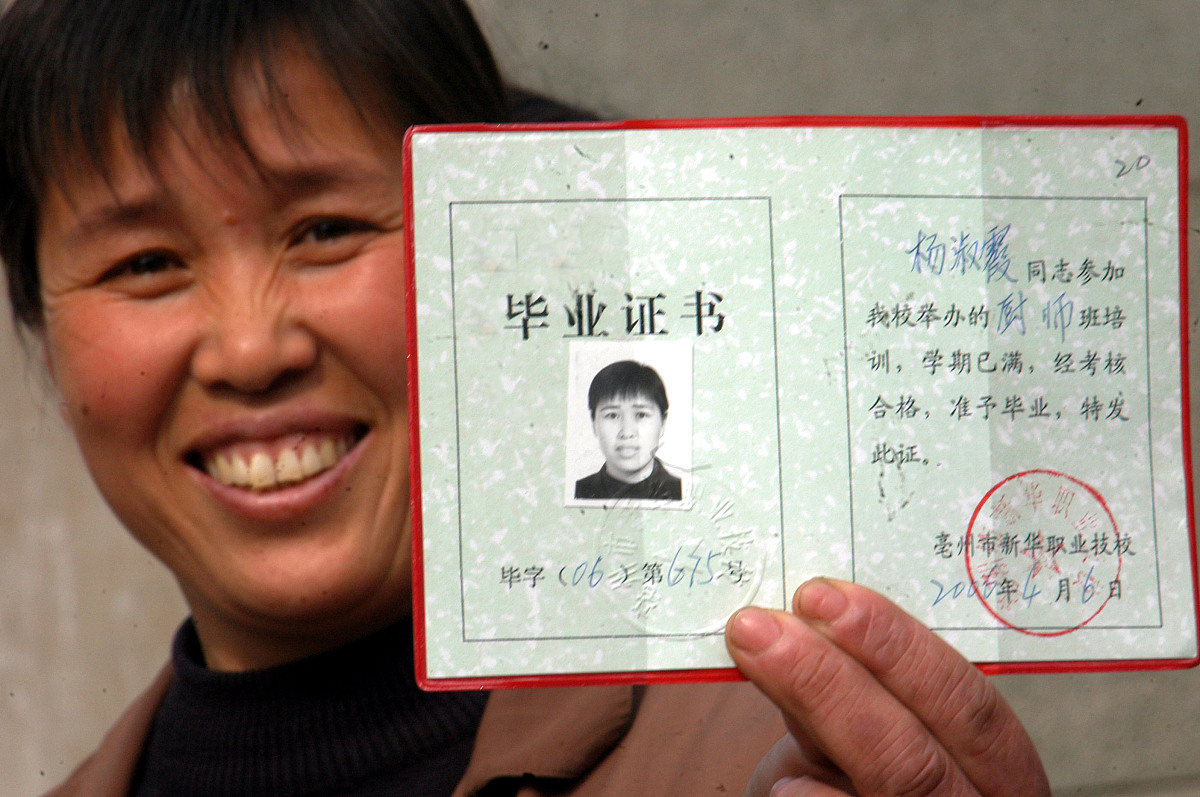 毕业证书
毕字（06）第675号
20
杨淑霞同志参加
我校举办的厨师班培
训，学期已满，经考核
合格，准予毕业，特发
此证。
亳州市新华职业技校
2006年4月6日